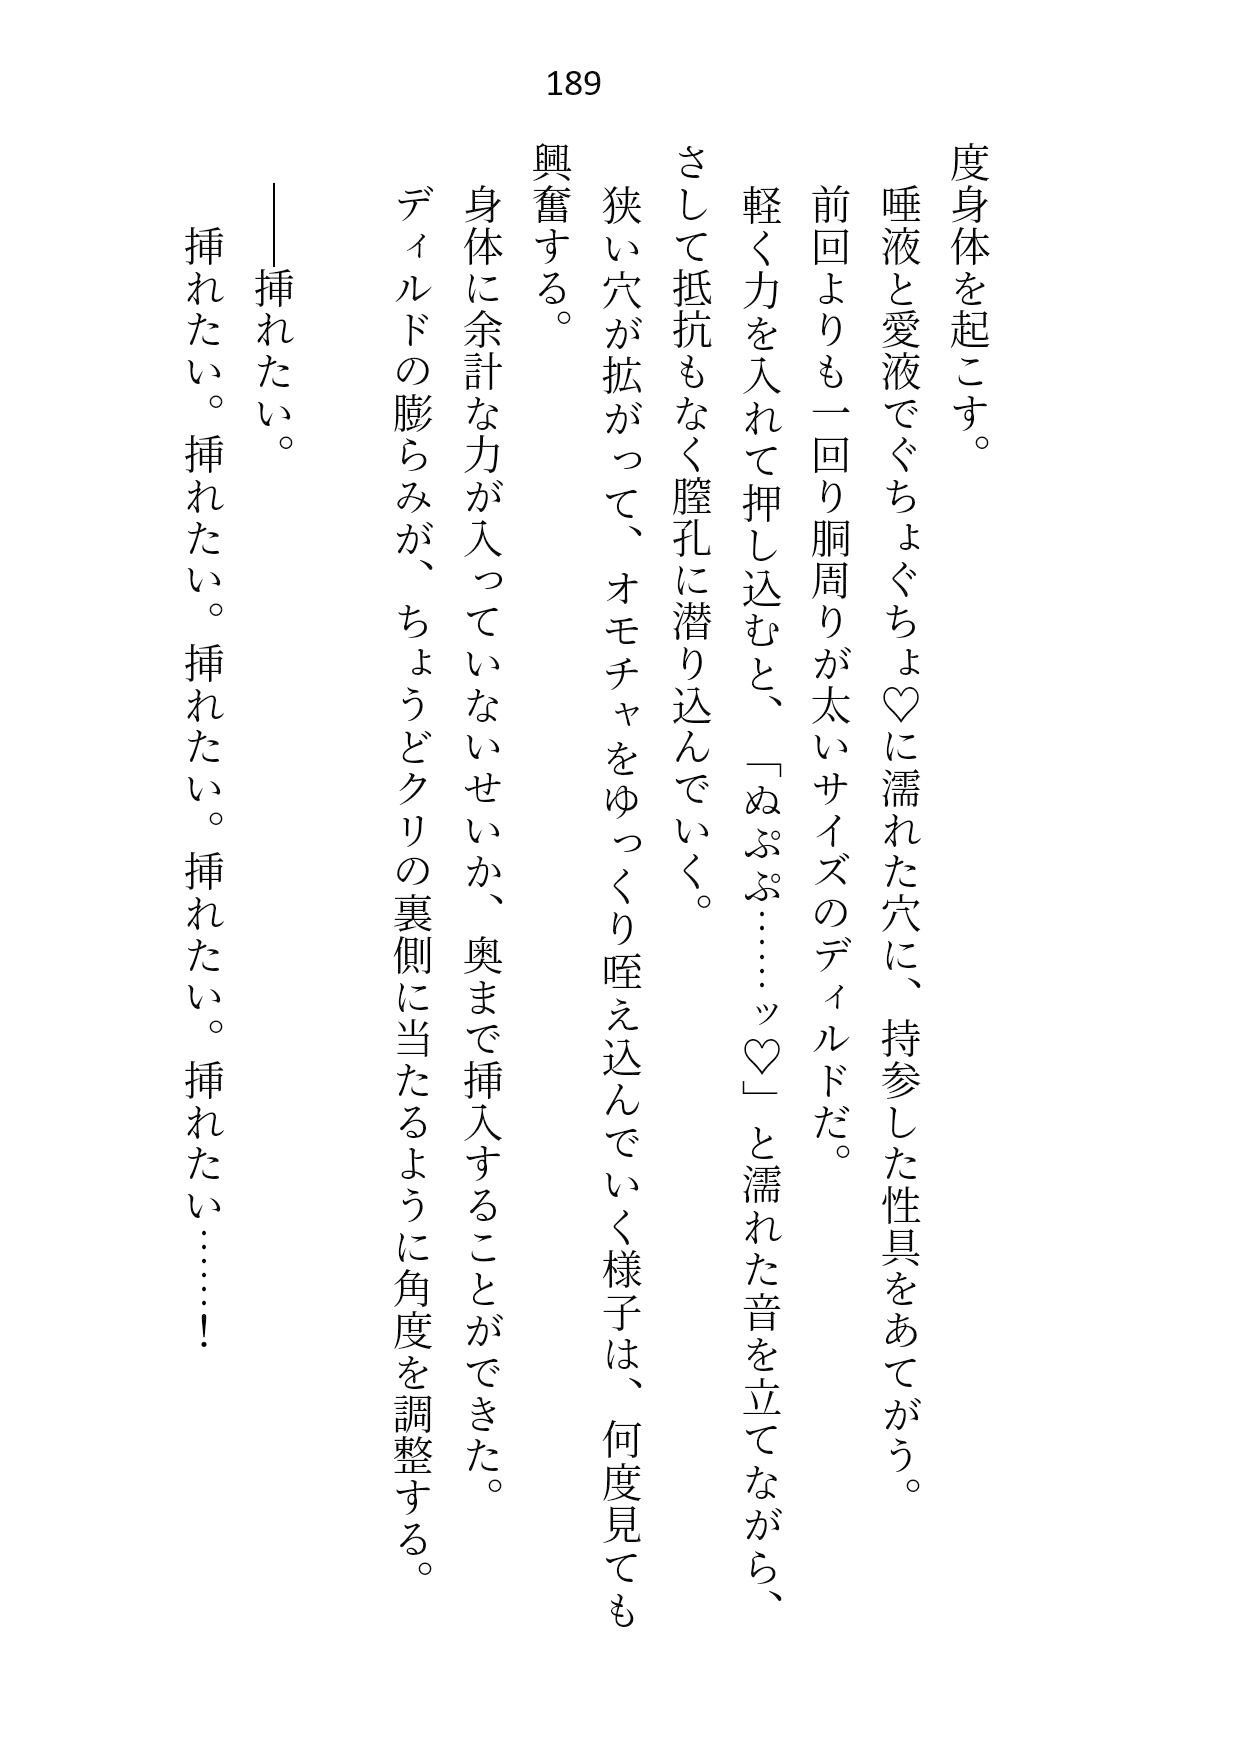 189
度身体を起こす。
唾液と愛液でぐちょぐちょ♡に濡れた穴に、持参した性具をあてがう。
前回よりも一回り胴周りが太いサイズのディルドだ。
軽く力を入れて押し込むと、「ぬぷぷ……ッ♡」と濡れた音を立てながら、
さして抵抗もなく膣孔に潜り込んでいく。
狭い穴が拡がって、オモチャをゆっくり咥え込んでいく様子は、何度見ても
興奮する。
身体に余計な力が入っていないせいか、奥まで挿入することができた。
ディルドの膨らみが、ちょうどクリの裏側に当たるように角度を調整する。
――挿れたい。
挿れたい。挿れたい。挿れたい。挿れたい。挿れたい……！